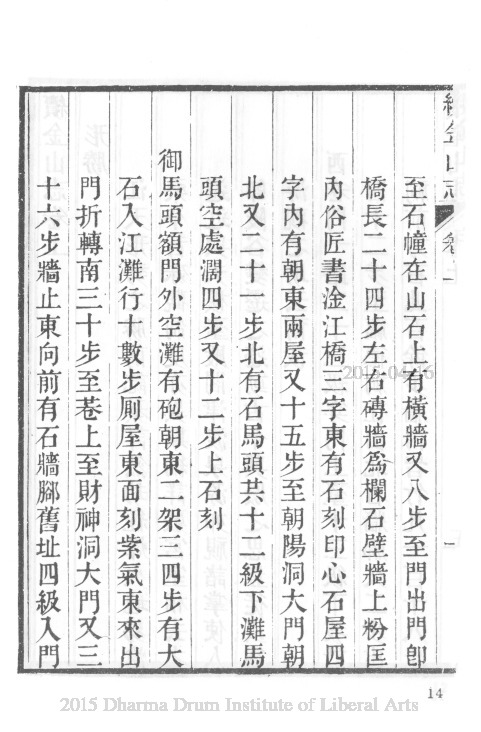 續金山志 卷上 一
至石幢在山石上有橫牆又八步至門出門卽
橋長二十四步左右磚牆爲欄石壁牆上粉匡
內俗匠書淦江橋三字東有石刻印心石屋四
字內有朝東兩屋又十五步至朝陽洞大門朝
北又二十一步北有石馬頭共十二級下灘馬
頭空處濶四步又十二步上石刻
御馬頭額門外空灘有砲朝東二架三四步有大
石入江灘行十數步厠屋東面刻紫氣東來出
門折轉南三十步至巷上至財神洞大門又三
十六步牆止東向前有石牆腳舊址四級入門
14
2015-04-16
2015 Dharma Drum Institute of Liberal Arts